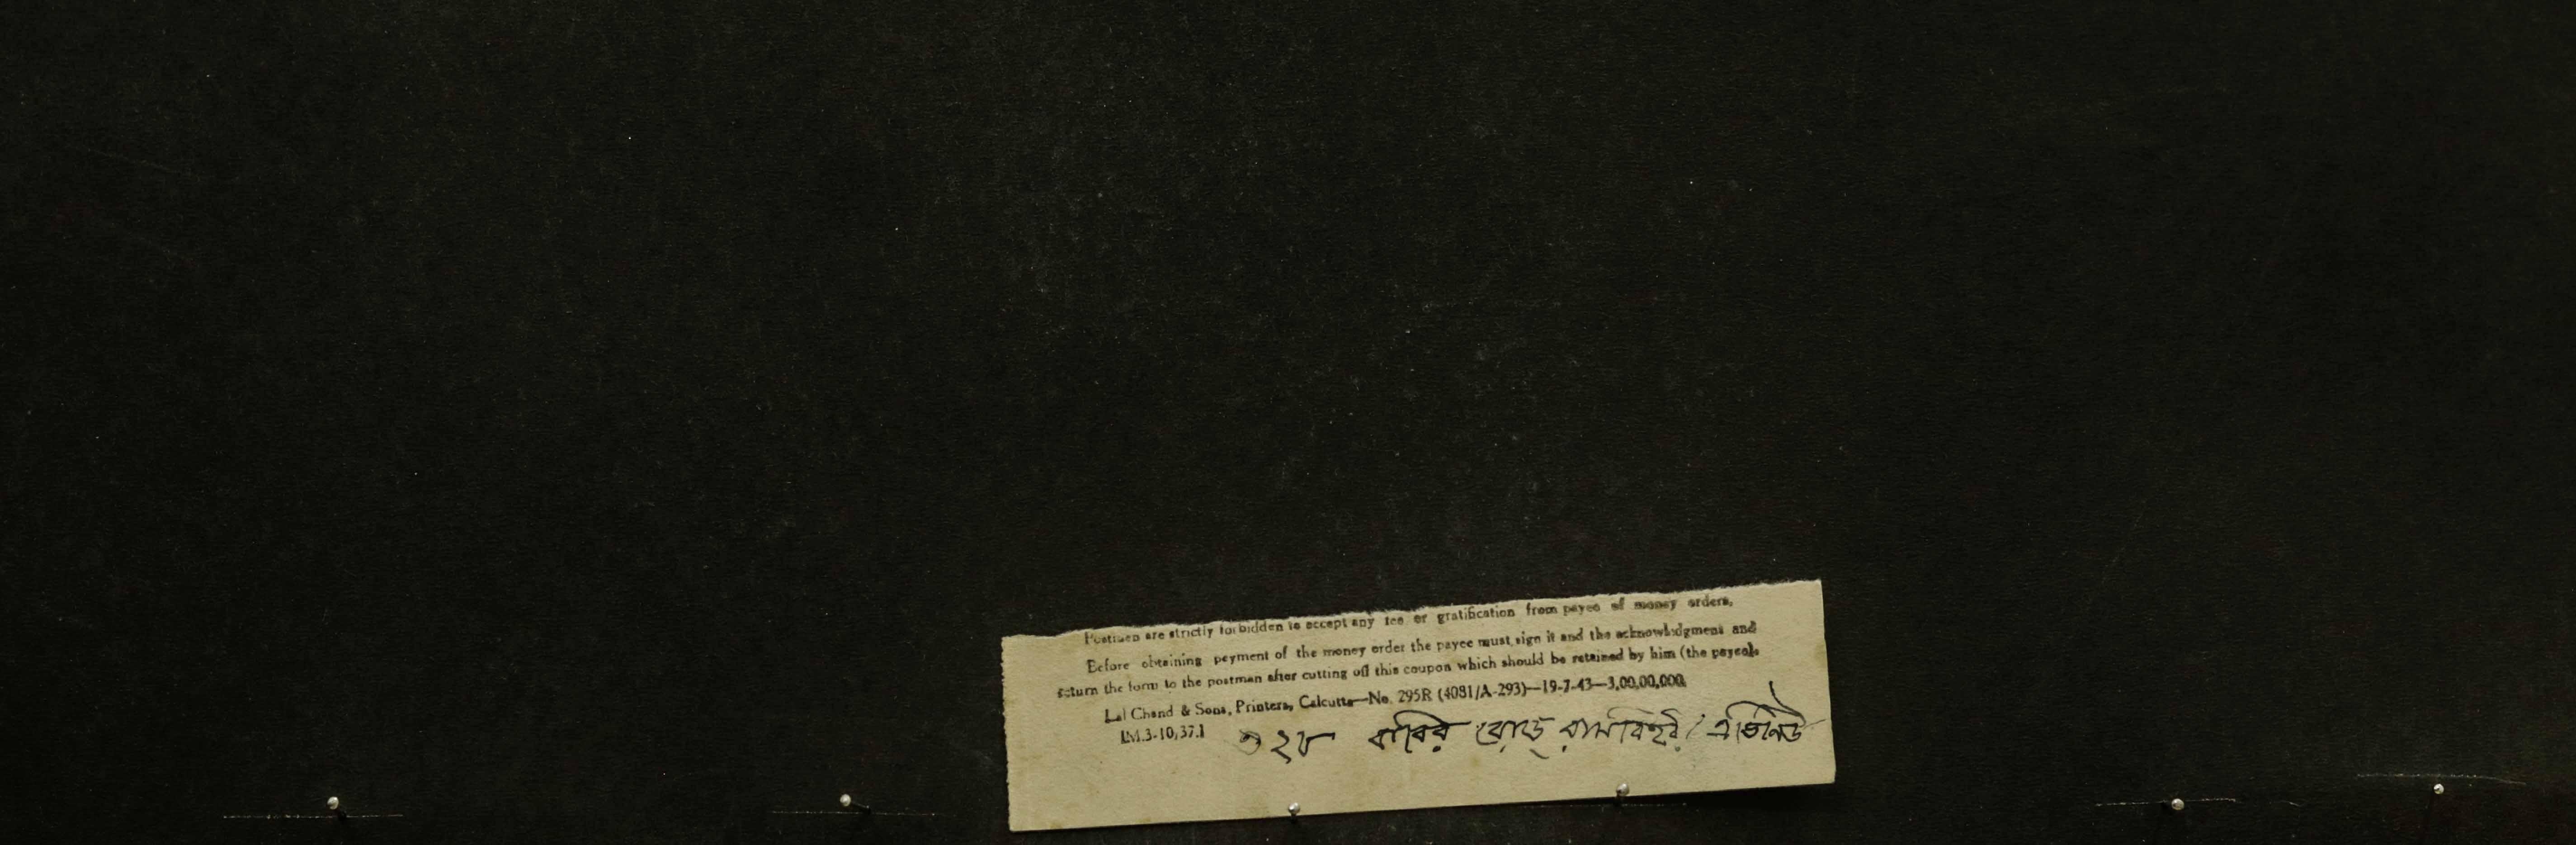 Postmen are strictly forbidden to accept any fee or gratification from payee of money orders.
Before obtaining peyment of the money order the payee must sign it and the acknowledgment and
return the form to the postman after cutting off this coupon which should be retained by him (the payee).
Lal Chand & Sons, Printers, Calcutta—No. 295R (4081/A-293)—19-7-43—3,00,00,000.
I.M.3-10,37.1 ৩২৮ রোড রাসবিহারী এভিনিউ